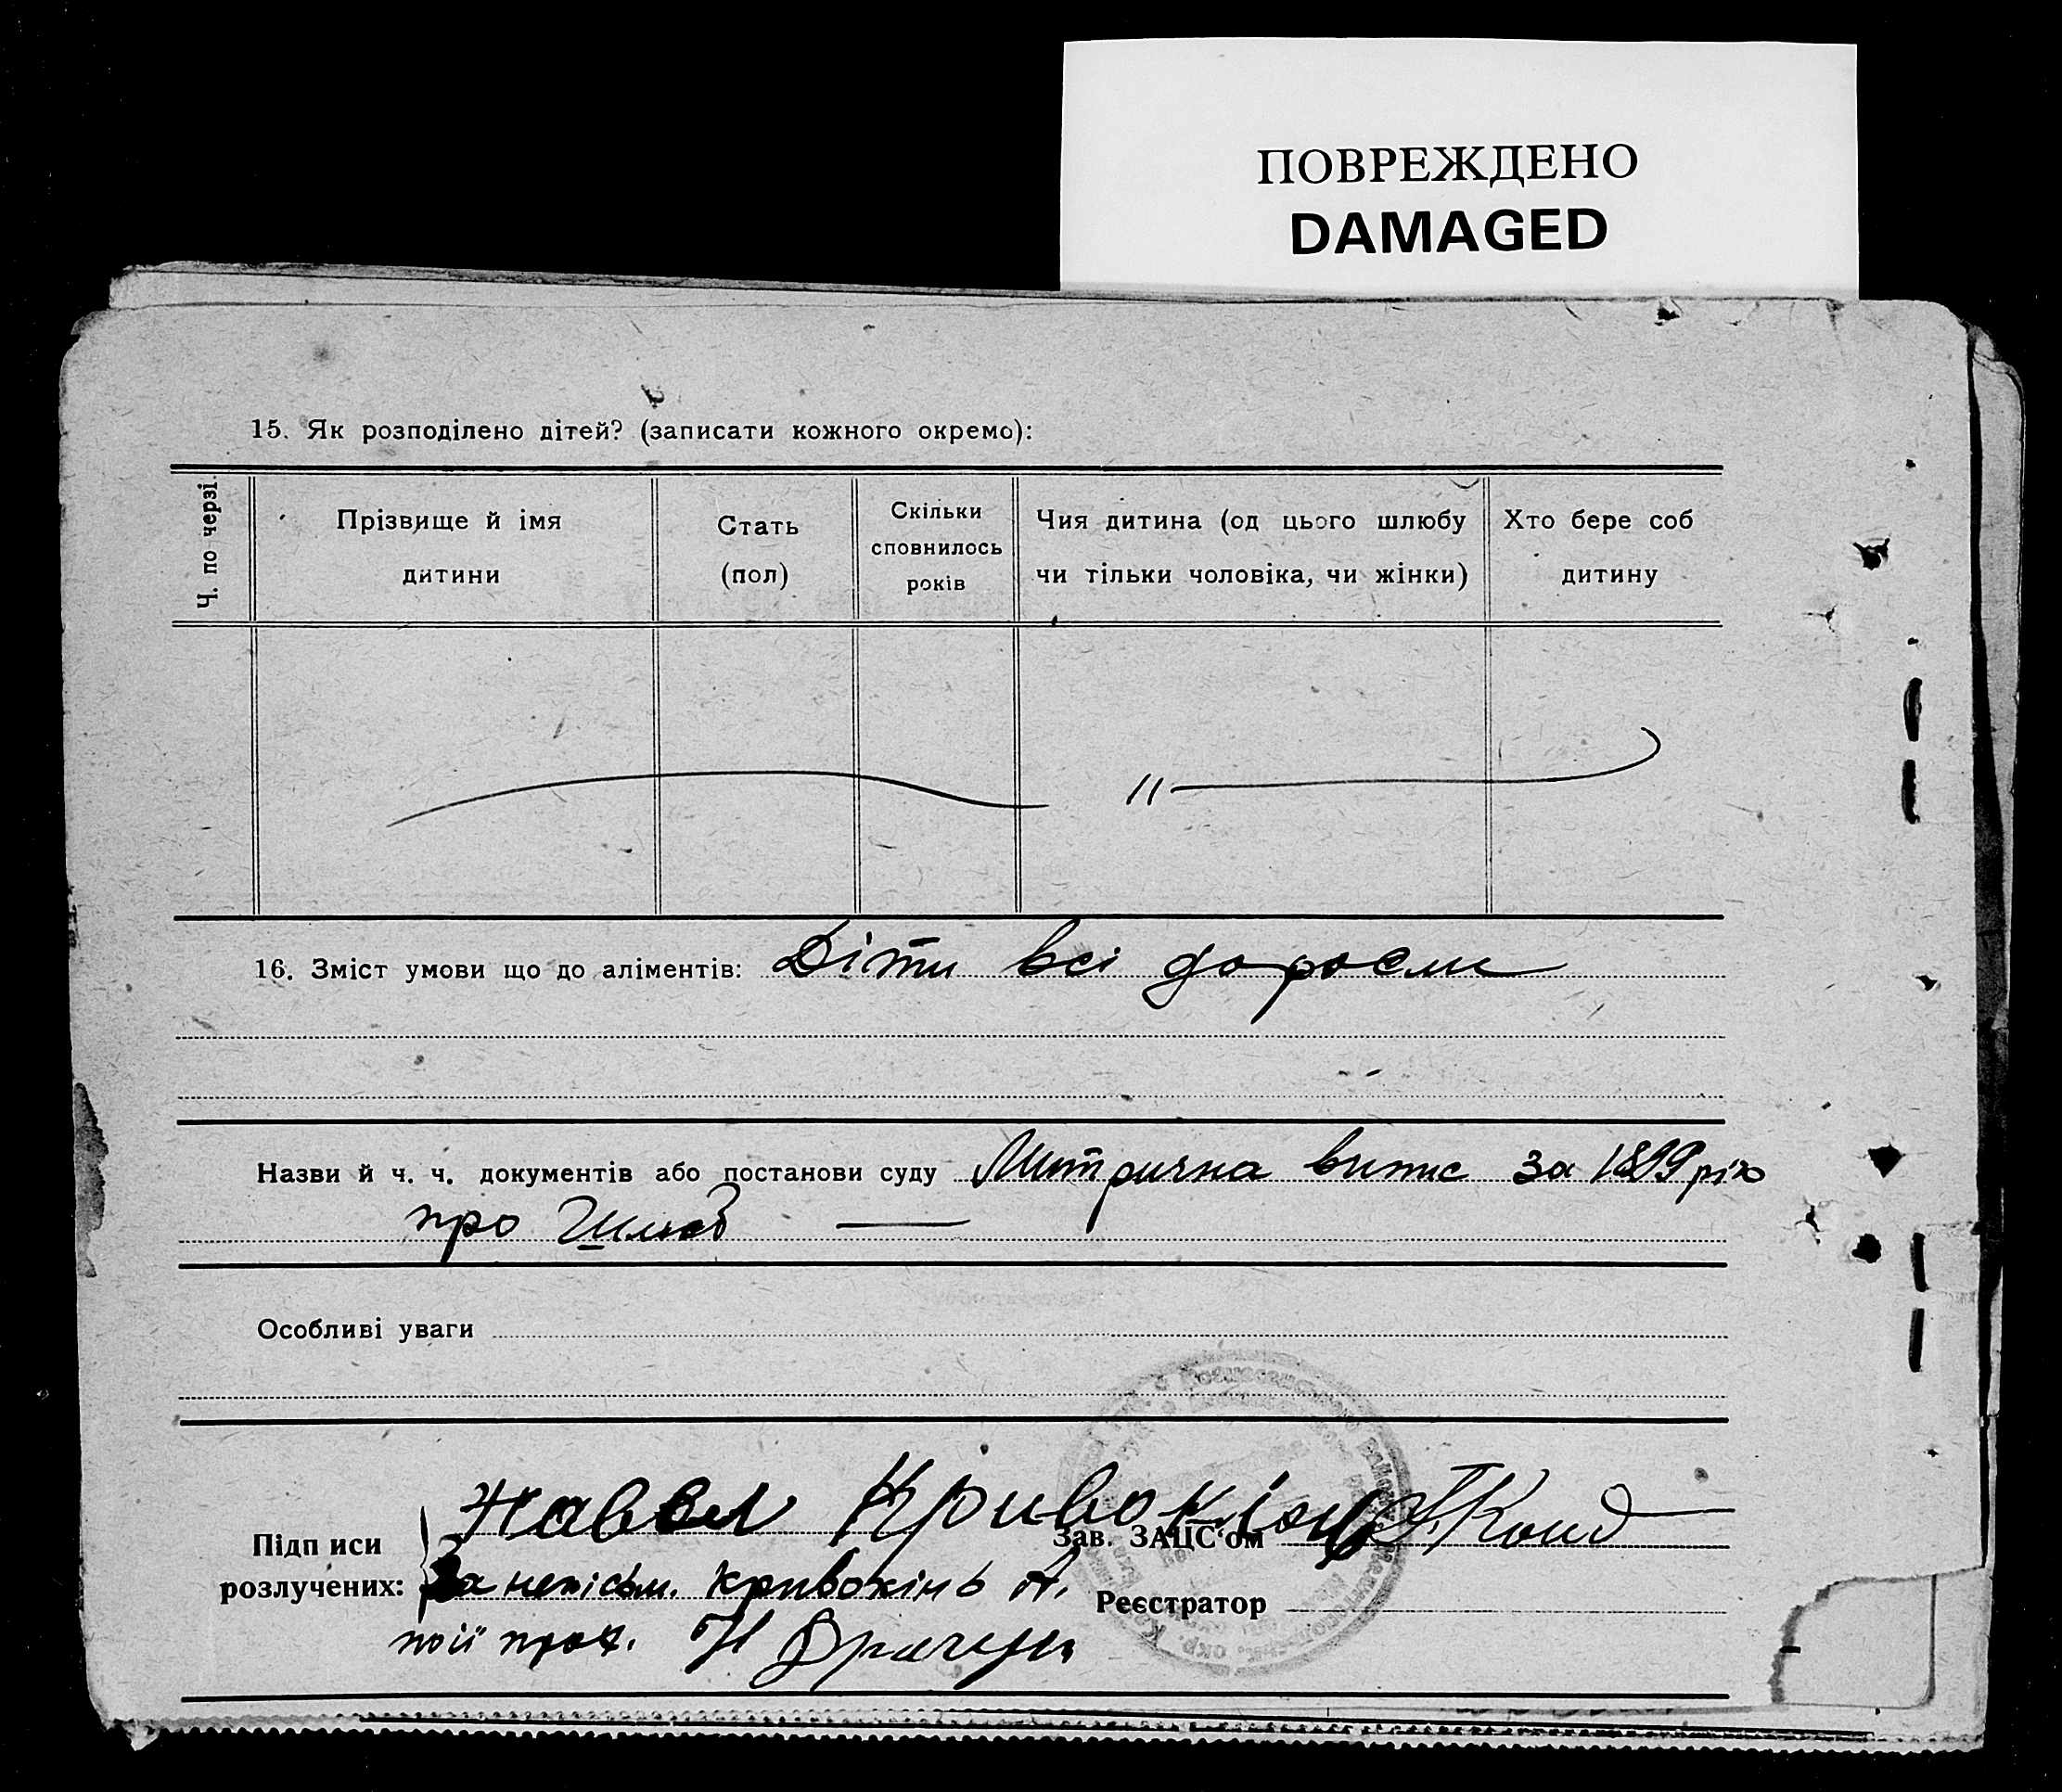 ПОВРЕЖДЕНО
DAMAGED
15. Як розподілено дітей? (записати кожного окремо):
Ч. по черзі.
Прізвище й імя
дитини
Стать
(пол)
Скільки
сповнилось
років
Чия дитина (од цього шлюбу
чи тільки чоловіка, чи жінки)
Хто бере соб
дитину
"
16. Зміст умови що до аліментів: Діти всі доросли
Назви й ч. ч. документів або постанови суду Митрична випис за 1899 рік
про Шлюб
Особливі уваги
Павел Кривокінь
Підписи
розлучених:
За неписьм. Кривокінь А.
по її прох.
Зав. ЗАЦС'ом
Реєстратор